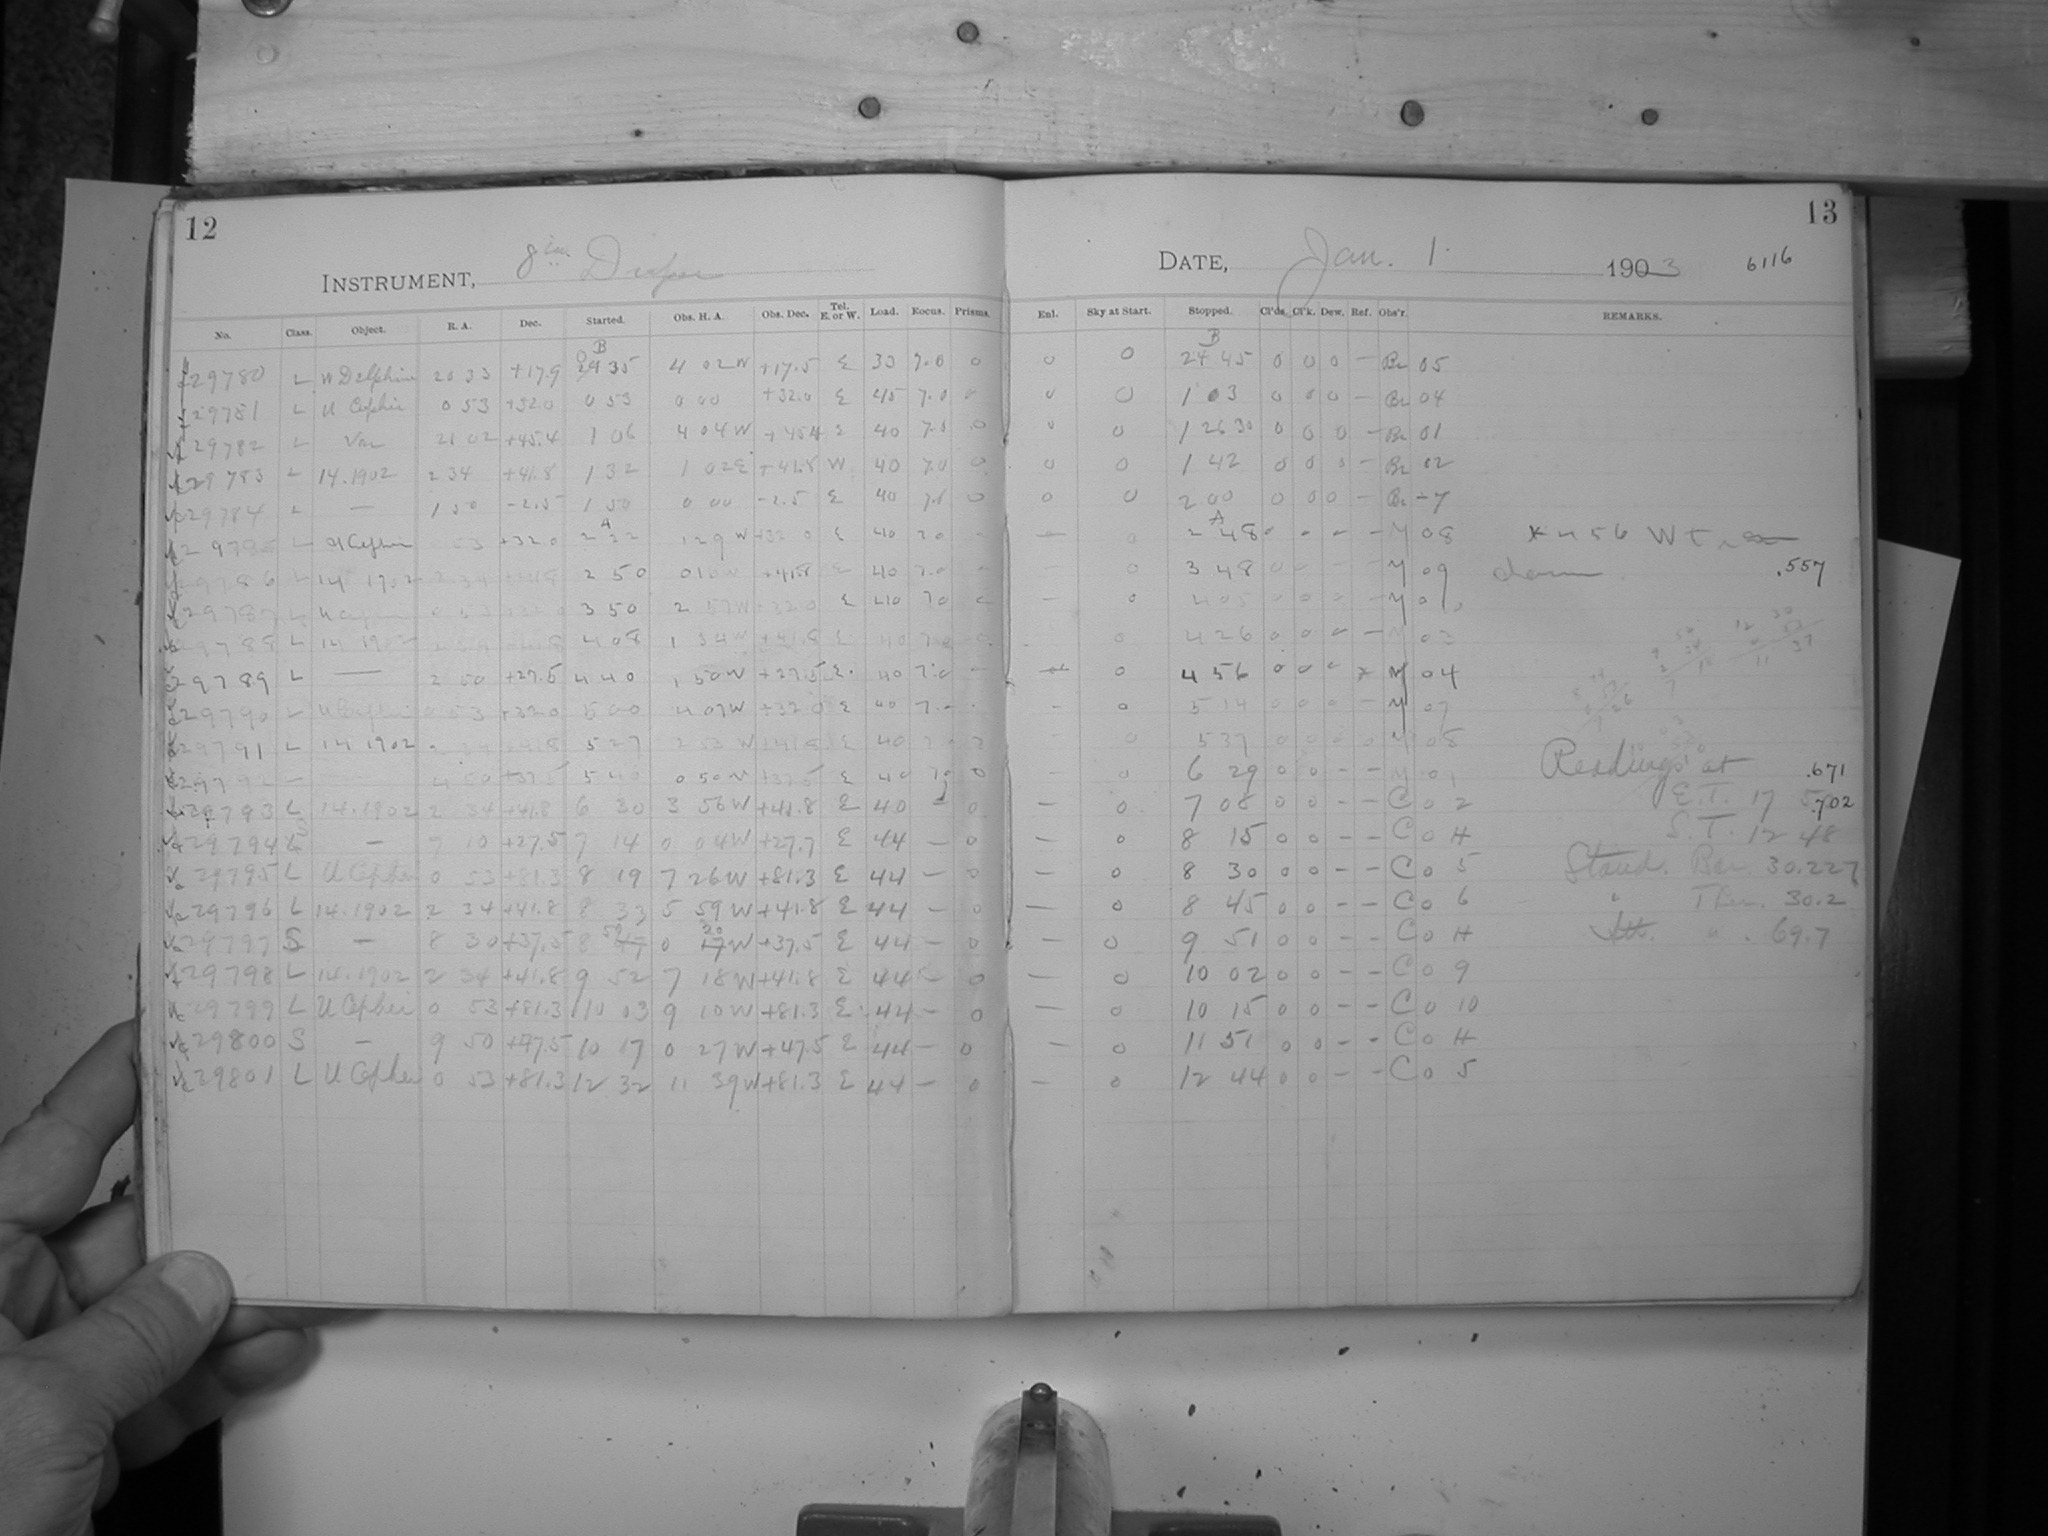 12
13
INSTRUMENT, 8 in. Draper
DATE, Jan. 1. 1903 6116
No. Class. Object. R. A. Dec. Started. Obs. H. A. Obs. Dec. Tel. E. or W. Load. Focus. Prisms. Enl. Sky at Start. Stopped. Cl'ds. Cl'k. Dew. Ref. Obs'r. REMARKS.
B B
29780 L W Delphini 20 33 +17.9 35 4 02 W +17.5 E 30 7.0 0 0 0 24 45 0 0 0 – Br 05
29781 L U Cephei 0 53 +32.0 0 53 0 00 +32.0 E 45 7.0 0 0 0 1 03 0 0 0 – Br 04
29782 L Var 21 02 +45.4 1 06 4 04 W +45.4 E 40 7.0 0 0 0 1 26 30 0 0 0 – Br 01
29783 L 14.1902 2 34 +41.8 1 32 1 02 E +41.8 W 40 7.0 0 0 0 1 42 0 0 0 – Br 02
29784 L — 1 50 -2.5 1 50 0 00 -2.5 E 40 7.0 0 0 0 2 00 0 0 0 – Br -7
A A
29785 L U Cephei 53 +32.0 2 22 1 29 W +32.0 E 40 7.0 – – 0 2 48 0 0 – – M 08 * 56 W
29786 L 14 1902 2 34 +41.8 2 50 0 16 W +41.8 E 40 7.0 – – 0 3 48 0 0 – – M 09 .557
29787 L U Cephei 0 53 +32.0 3 50 2 57 W +32.0 E 40 7.0 – 0 4 05 0 0 0 – M
29788 L 14 1902 2 34 +41.8 4 08 1 34 W +41.8 E 40 7.0 0 4 26 0 0 – – M 03
29789 L — 2 50 +27.5 4 40 1 50 W +27.5 E. 40 7.0 – 0 4 56 0 0 0 * M 04
29790 L U Cephei 0 53 +32.0 5 00 4 07 W +32.0 E 40 7.– – 0 5 14 0 0 0 – M 07
29791 L 14 1902 2 34 +41.8 5 27 2 53 W +41.8 E 40 – 0 5 37 0 0 0 0 M 08
29792 – 4 50 +37.5 5 40 0 50 W +37.5 E 40 7.0 0 – 0 6 29 0 0 – – M 01 Readings at .671
29793 L 14.1902 2 34 +41.8 6 30 3 56 W +41.8 E 40 – 0 – 0 7 08 0 0 – – C 0 2 E.T. 17 .702
29794 – 7 10 +27.5 7 14 0 04 W +27.7 E 44 – 0 – 0 8 15 0 0 – – C 0 H S.T. 12 48
29795 L U Cephei 0 53 +81.3 8 19 7 26 W +81.3 E 44 – 0 – 0 8 30 0 0 – – C 0 5 Stand. Bar. 30.227
29796 L 14.1902 2 34 +41.8 8 33 5 59 W +41.8 E 44 – 0 – 0 8 45 0 0 – – C 0 6 " Ther. 30.2
29797 S – 8 30 +37.5 8 50 0 20 W +37.5 E 44 – 0 – 0 9 51 0 0 – – C 0 H Att. " . 69.7
29798 L 14.1902 2 34 +41.8 9 52 7 18 W +41.8 E 44 – 0 – 0 10 02 0 0 – – C 0 9
29799 L U Cephei 0 53 +81.3 10 03 9 10 W +81.3 E 44 – 0 – 0 10 15 0 0 – – C 0 10
29800 S – 9 50 +47.5 10 17 0 27 W +47.5 E 44 – 0 – 0 11 51 0 0 – – C 0 H
29801 L U Cephei 0 53 +81.3 12 32 11 39 W +81.3 E 44 – 0 – 0 12 44 0 0 – – C 0 5